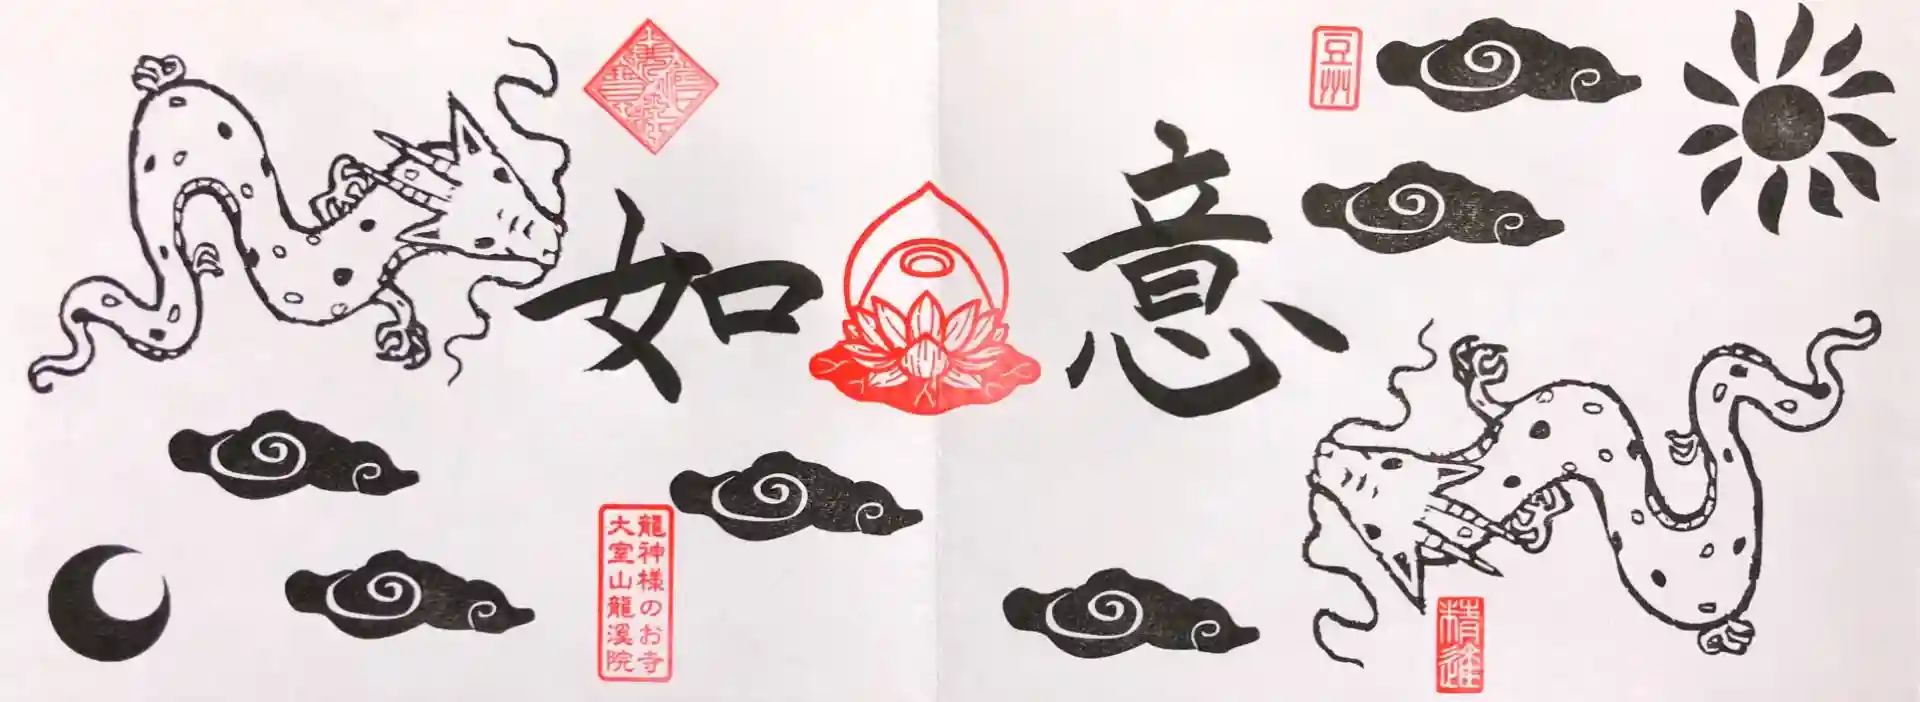 如意
豆州
龍神様のお寺
大室山龍溪院
精進